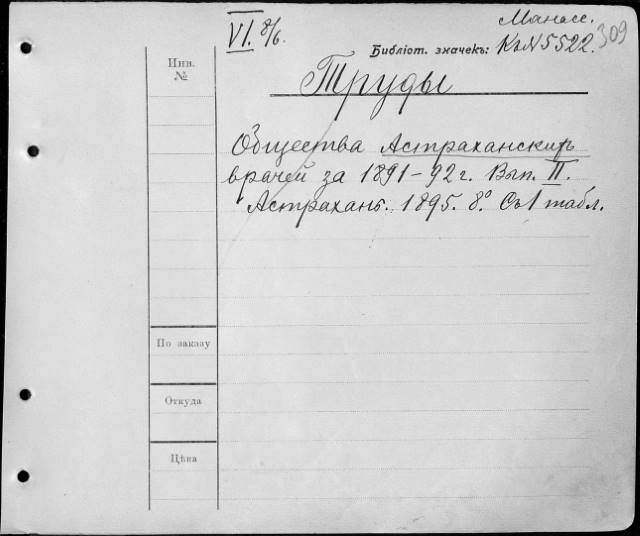 Манасс.
VI. 8/6.
Библіот. значекъ: К. № 5522. 309
Инв.
№
Труды
Общества Астраханскихъ
врачей за 1891–92 г. Вып. II.
Астрахань. 1895. 8º. Съ 1 табл.
По заказу
Откуда
Цѣна